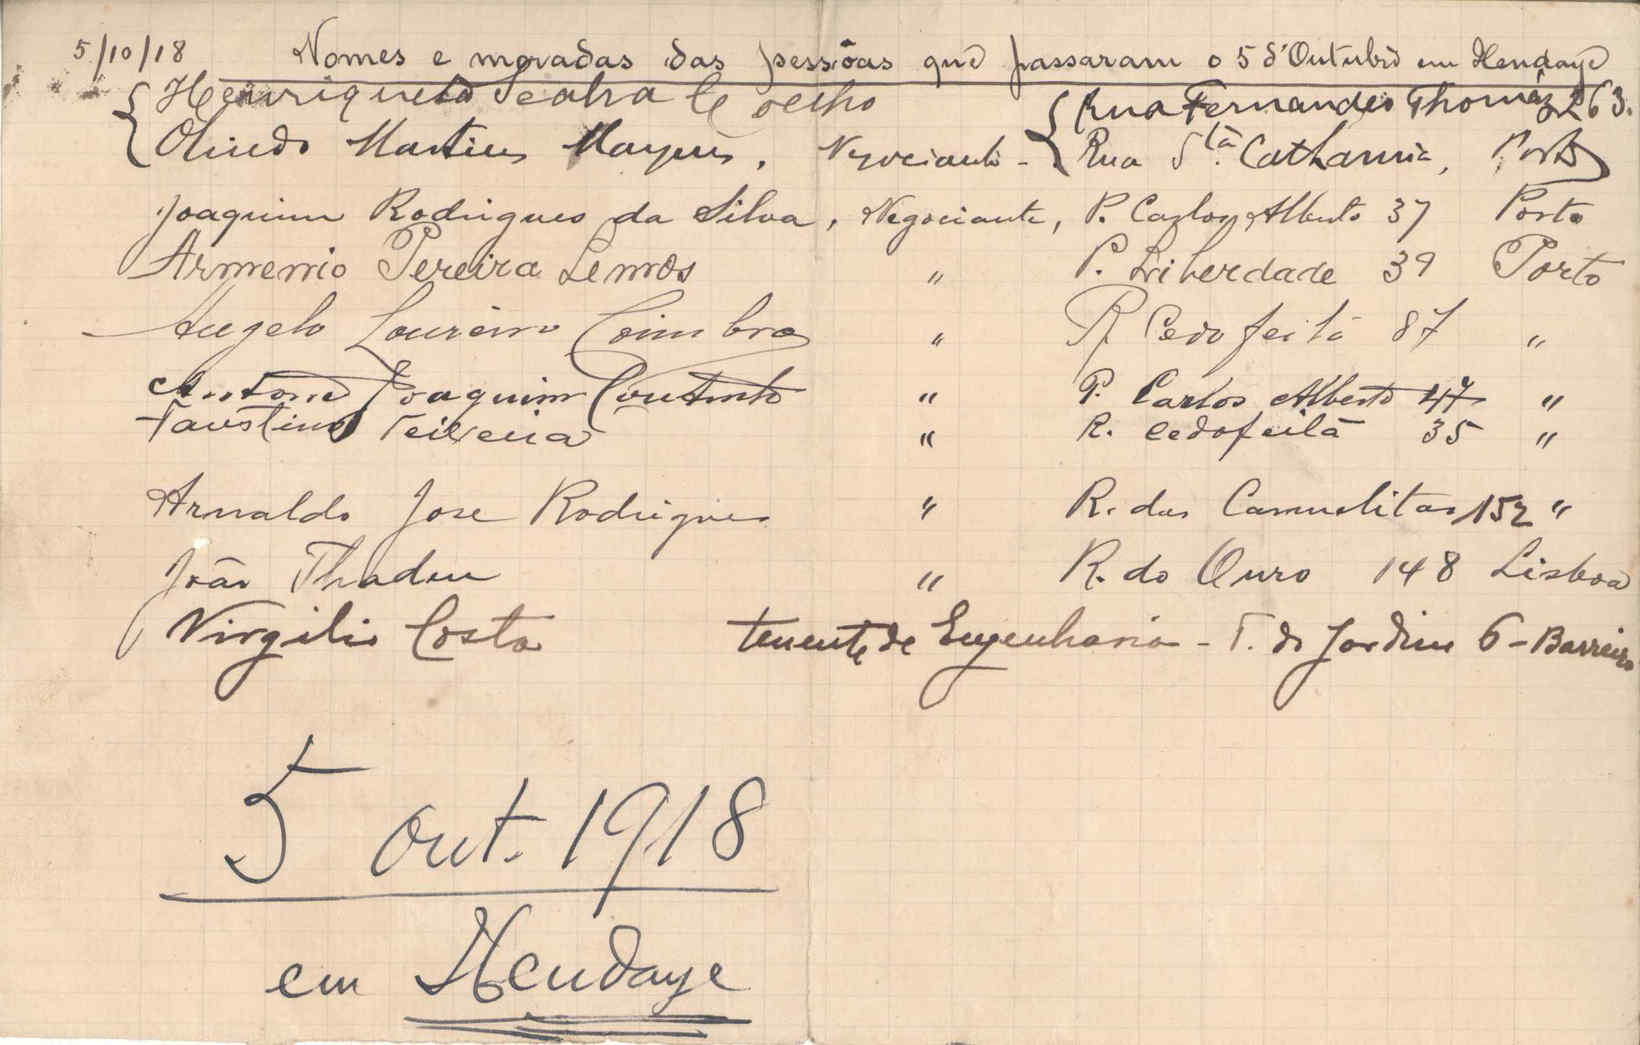 5/10/18 Nomes e moradas das pessôas que passaram o 5 d'Outubro em Hendaye
Henriqueta Seabra Coelho Rua Fernandes Thomáz 263.
Olindo Martins Negociante - Rua Sta. Catharina, Porto
Joaquim Rodrigues da Silva, Negociante, P. Carlos Alberto 37 Porto
Armenio Pereira Lemos " P. Liberdade 39 Porto
Angelo Loureiro Coimbra " R. Cedofeita 87 "
Antonio Joaquim Coutinho " P. Carlos Alberto 47 "
Faustino Teixeira " R. Cedofeita 35 "
Arnaldo Jose Rodrigues " R. das Carmelitas 152 "
João Thadeu " R. do Ouro 148 Lisboa
Virgilio Costa tenente de Engenharia - T. do Jardim 6 - Barreiro
5 out. 1918
em Hendaye